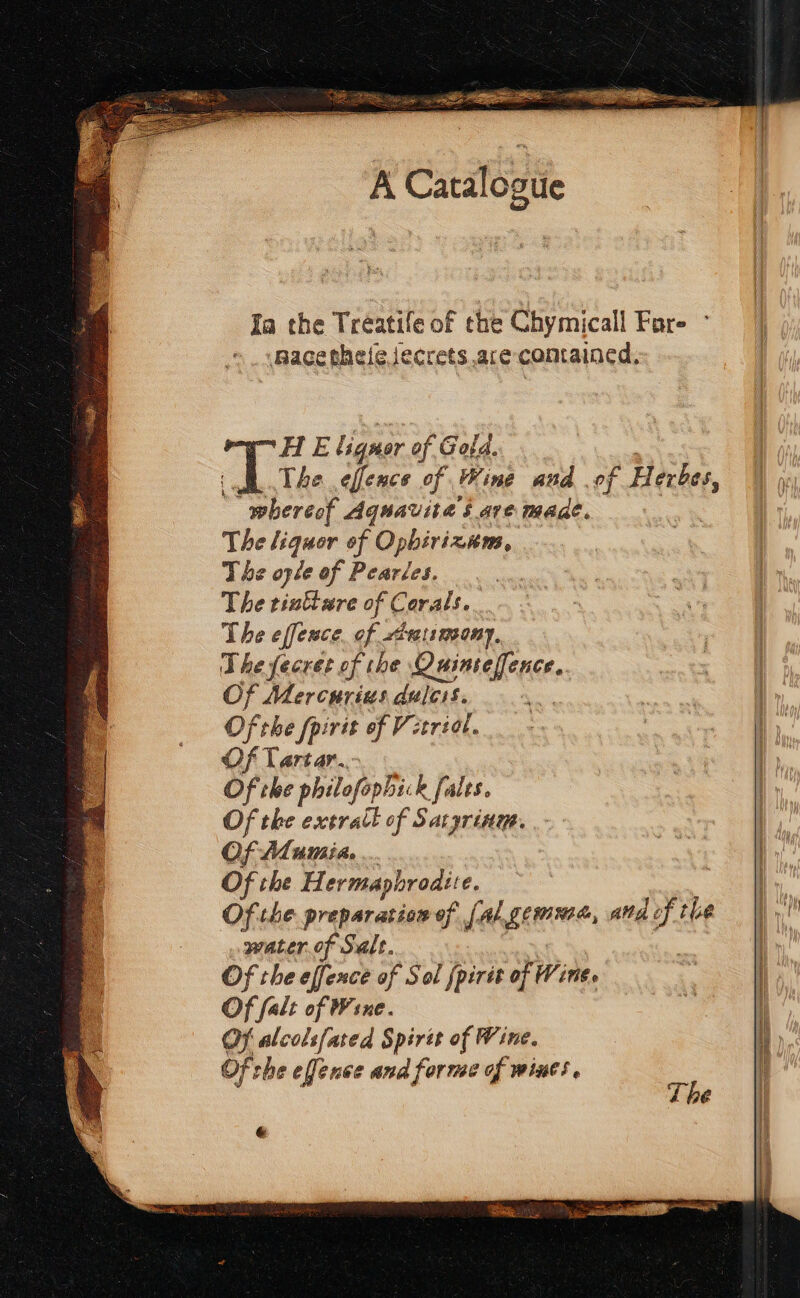 A Catalogue
In the Treatise of the Chymicall Fur-
nace these secrets are contained.
THE liquor of Gold.
The essence of Wine and of Herbes,
whereof Aquavita's are made.
The liquor of Ophirizum,
The oyle of Pearles.
The tincture of Corals.
The essence of Antimony.
The secret of the Quintessence.
Of Mercurius dulcis.
Of the spirit of Vitriol.
Of Tartar.
Of the philosophick salts.
Of the extract of Satyrium.
Of Mumia.
Of the Hermaphrodite.
Of the preparation of sal gemma, and of the
water of Salt.
Of the essence of Sol spirit of Wine.
Of salt of Wine.
Of alcolisated Spirit of Wine.
Of the essence and forme of wines.
The